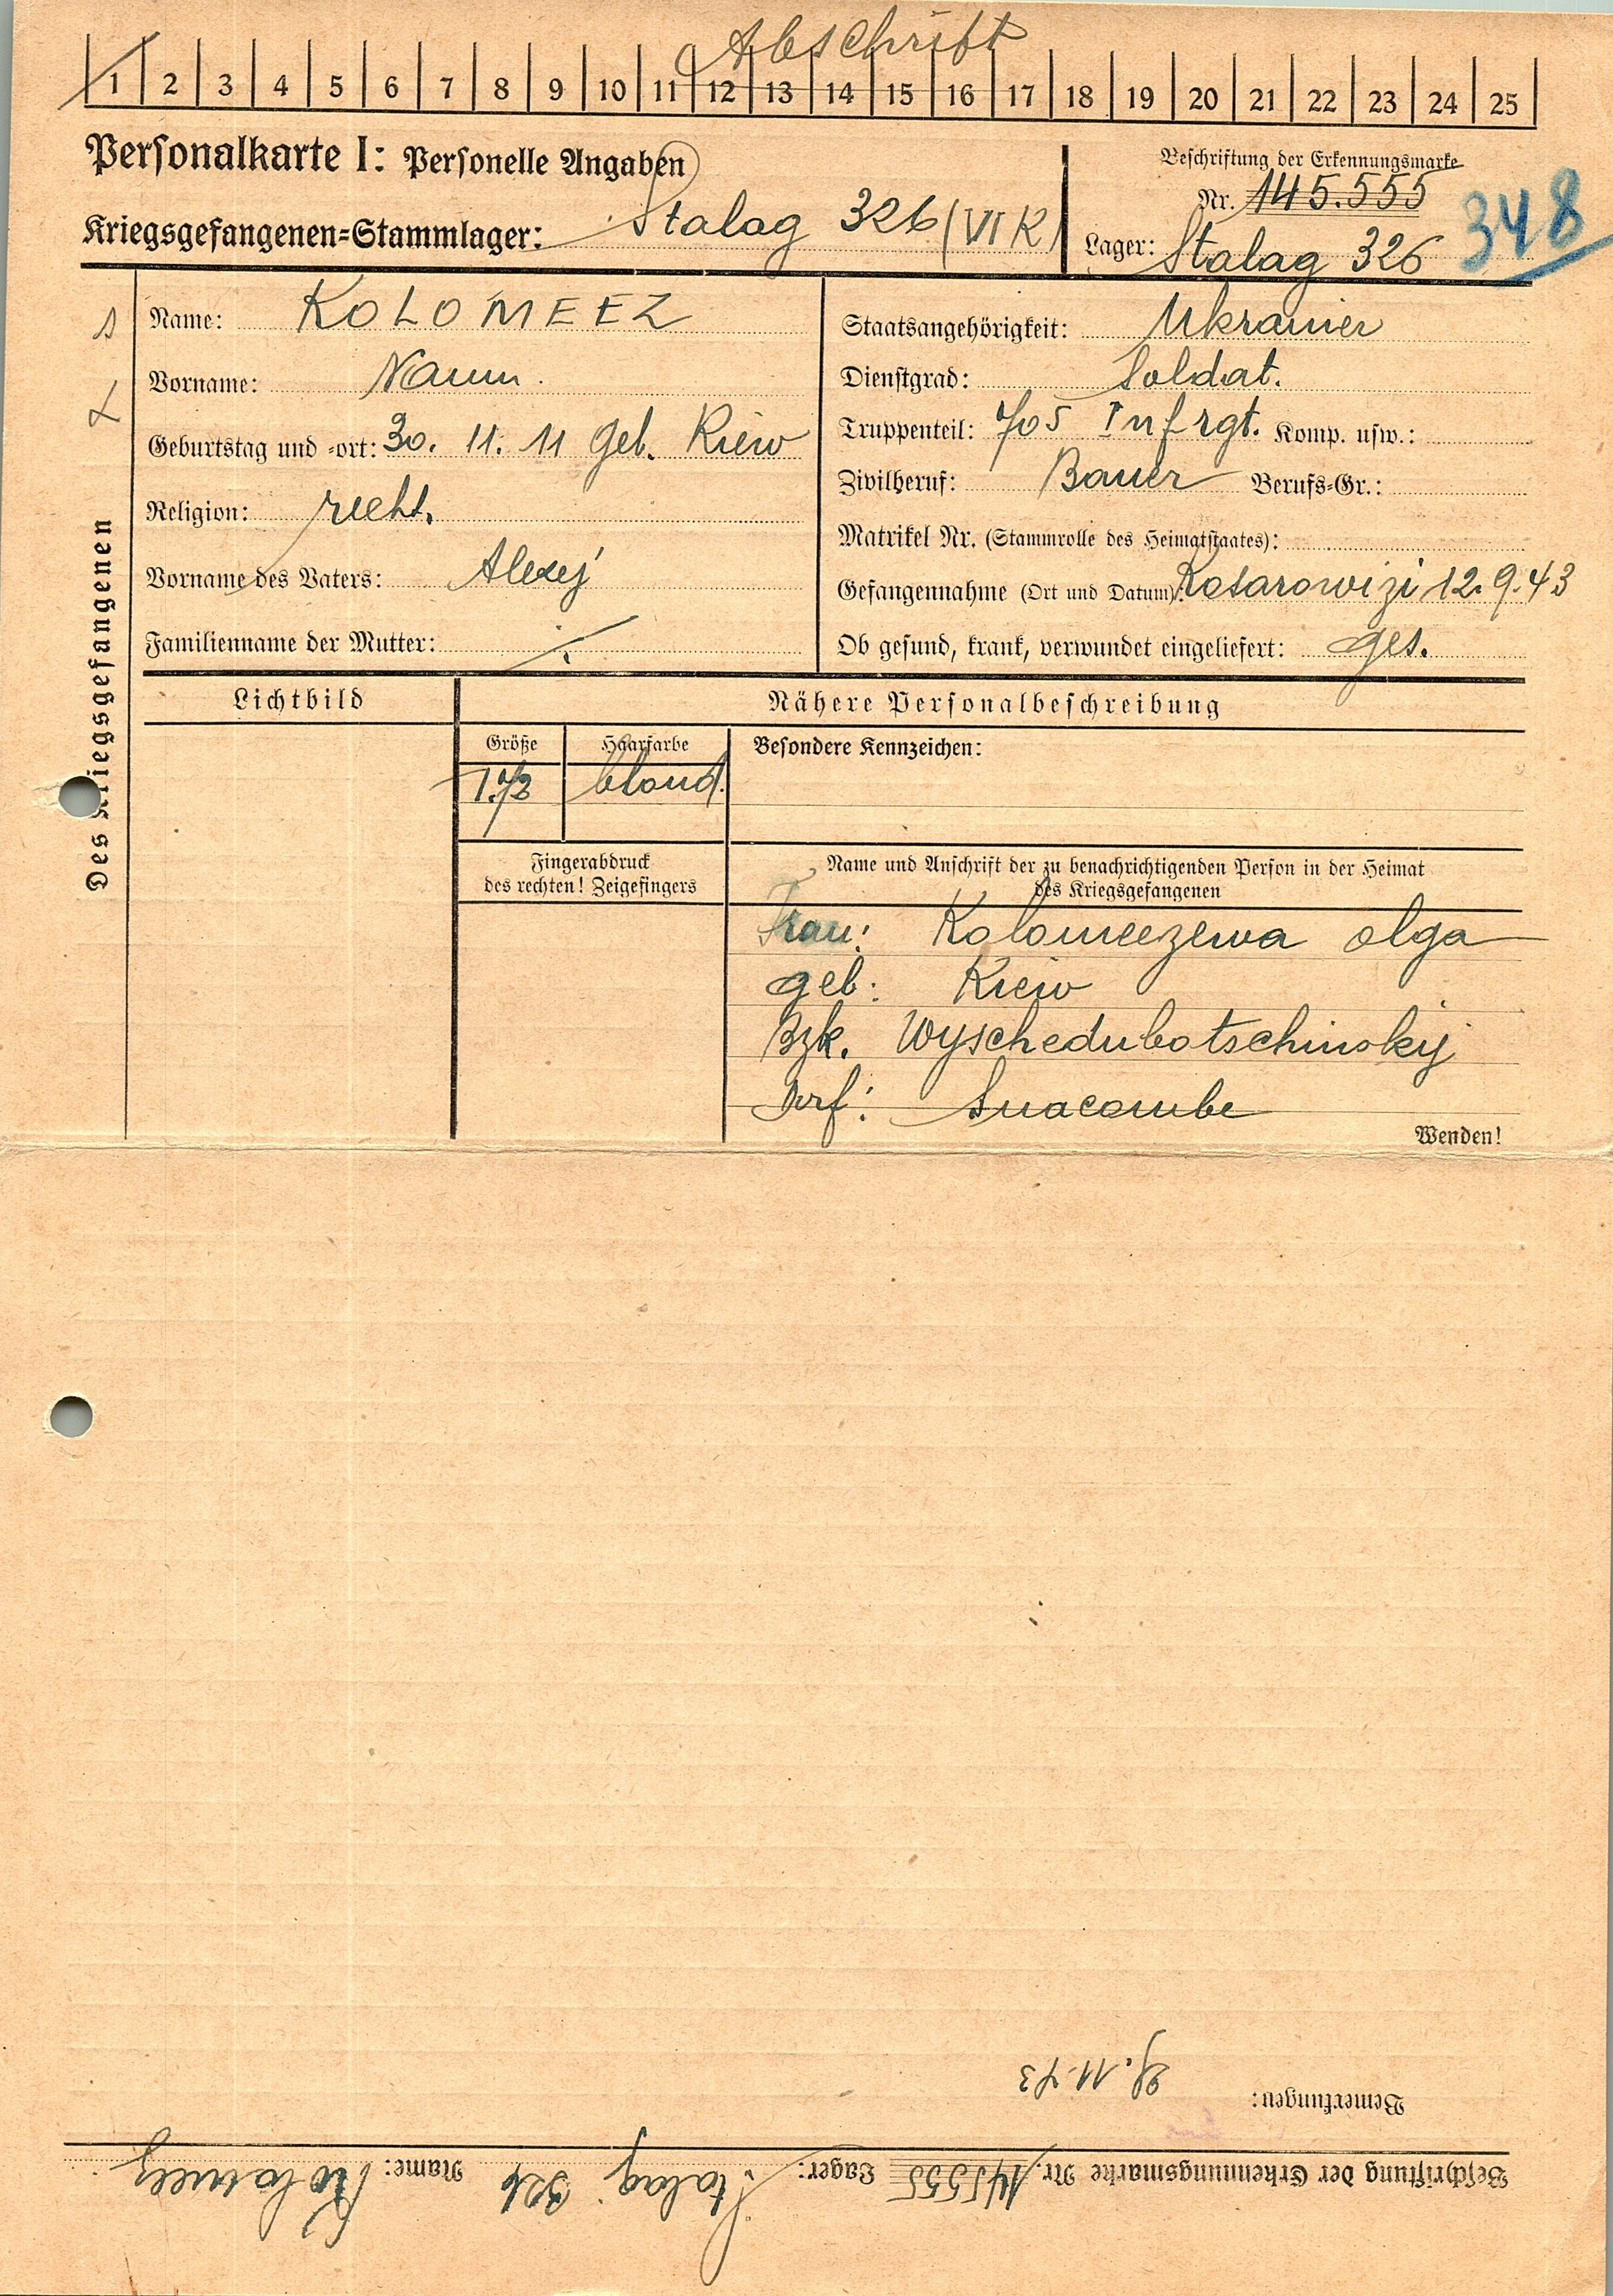 Abschrift
1 2 3 4 5 6 7 8 9 10 11 12 13 14 15 16 17 18 19 20 21 22 23 24 25
Personalkarte I: Personelle Angaben
Beschriftung der Erkennungsmarke
Nr. 145.555
348
Kriegsgefangenen=Stammlager: Stalag 326 (VI K)
Lager: Stalag 326
Des Kriegsgefangenen
Name: KOLOMEEZ
Vorname: Naum.
Geburtstag und =ort: 30. 11. 11 Geb. Kiew
Religion:
Vorname des Vaters: Alexej
Familienname der Mutter: ./.
Staatsangehörigkeit: Ukrainer
Dienstgrad: Soldat.
Truppenteil: 705 Inf rgt. Komp. usw.:
Zivilberuf: Bauer Berufs=Gr.:
Matrikel Nr. (Stammrolle des Heimatstaates):
Gefangennahme (Ort und Datum): Kosarowizi 12.9.43
Ob gesund, krank, verwundet eingeliefert: ges.
Lichtbild
Nähere Personalbeschreibung
Größe
1.73
Haarfarbe
blond.
Besondere Kennzeichen:
Fingerabdruck
des rechten! Zeigefingers
Name und Anschrift der zu benachrichtigenden Person in der Heimat
des Kriegsgefangenen
Frau: Kolomeezewa Olga
geb: Kiew
Bzk. Wyschedubotschinskij
Dorf:
Wenden!
Bemerkungen: 29. 11. 43
Beschriftung der Erkennungsmarke Nr. 145555 Lager: Stalag 326 Name: Kolomeez